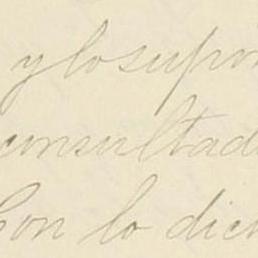 y lo supon
consultad
Con lo dich